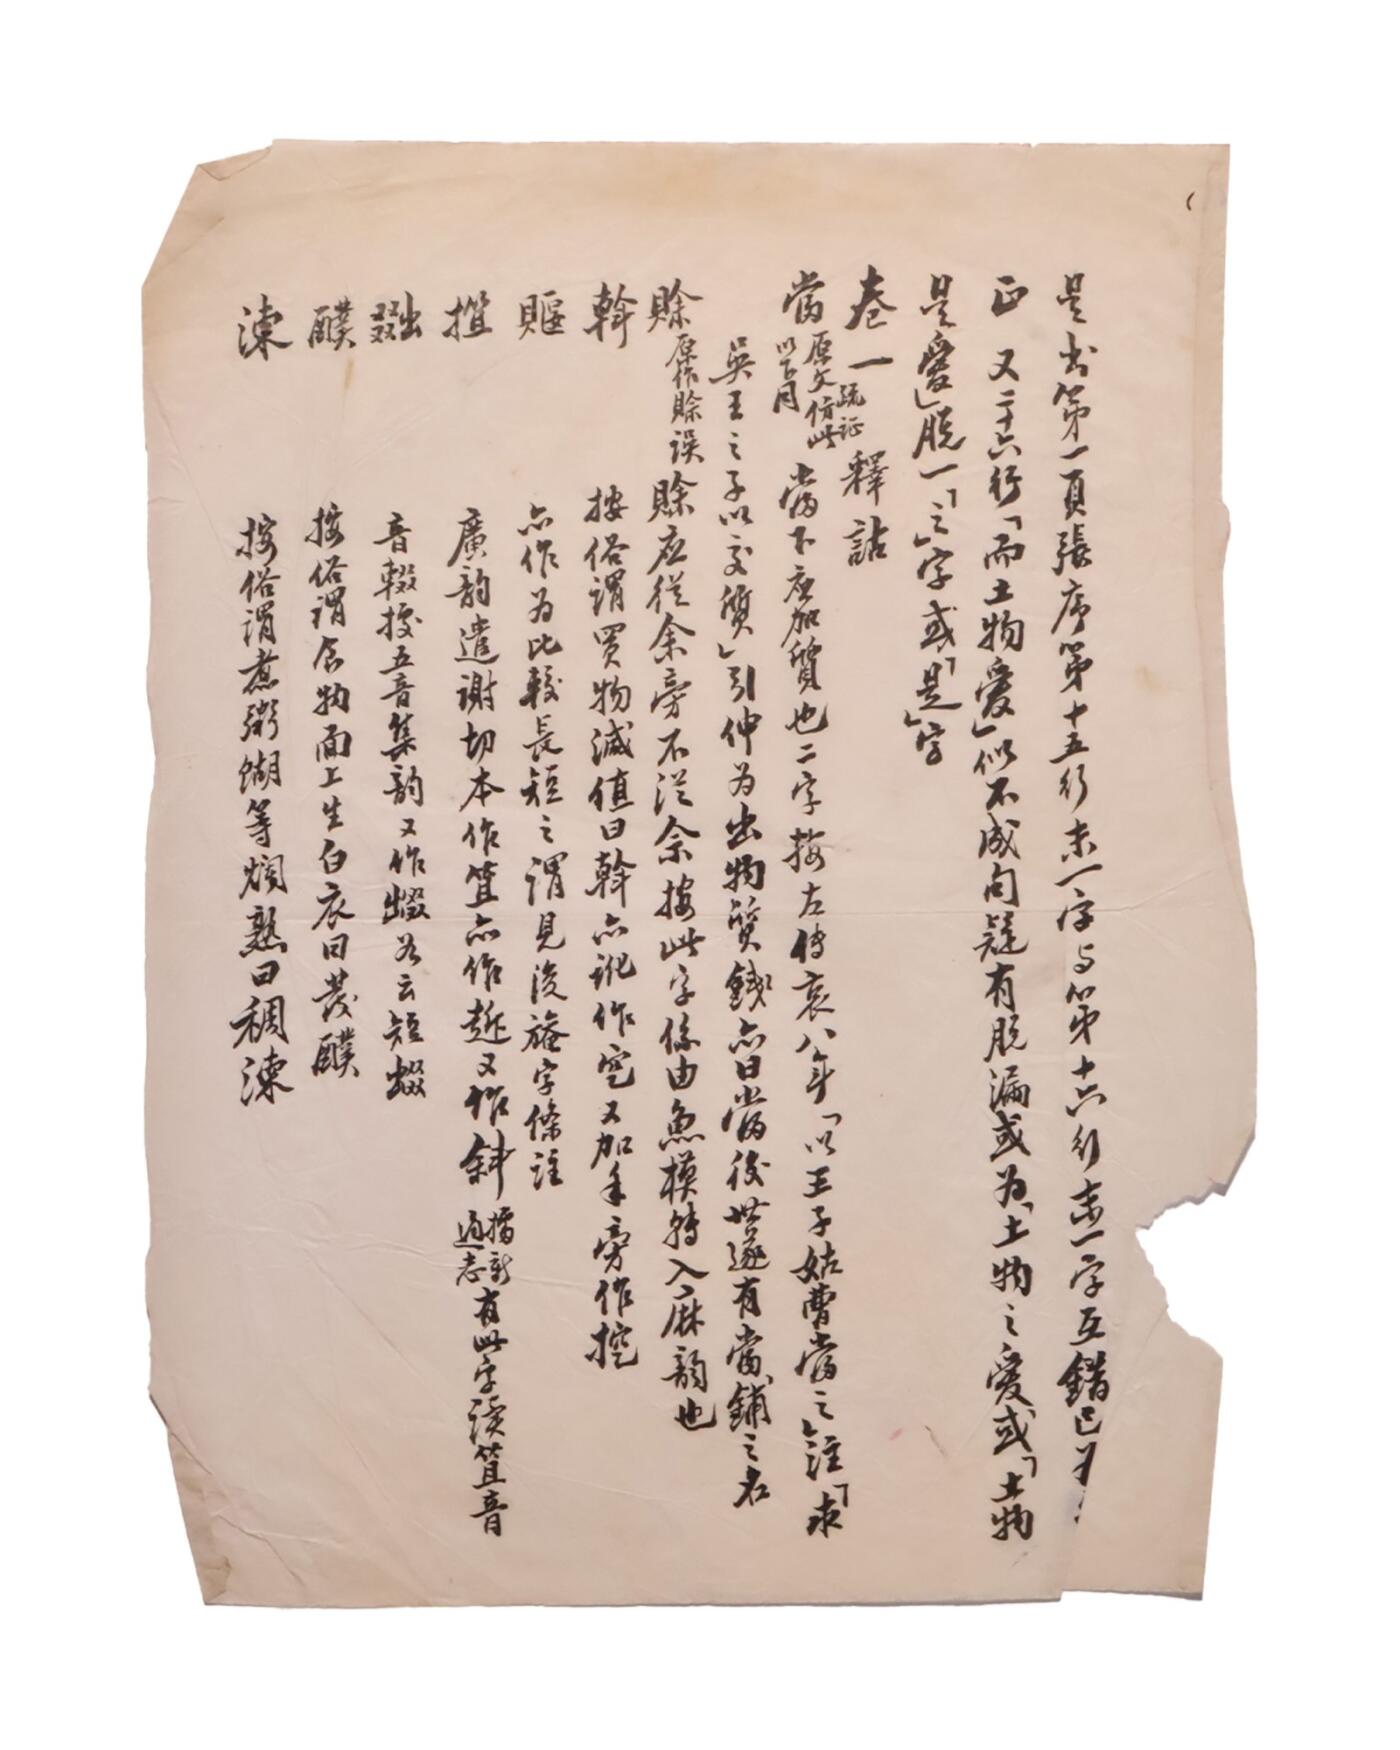 是书第一頁張序第十五行末一字与第十六行末一字互錯已
正　又二十六行「而土物愛」似不成句疑有脱漏或为「土物之愛或「土物
是愛」脱一「之」字或「是」字
卷一疏证　釋詁
當原文仿此以下同　當下应加質也二字按左傳哀八年「以王子姑曹當之」註「求
吳王之子以交質」引伸为出物質錢亦曰當後世遂有當鋪之名
賒原作賖误　賒应從余旁不從佘按此字係由魚模轉入麻韵也
斡　按俗謂買物減值曰斡亦訛作空又加手旁作挖
躽　亦作为比較長短之謂見後字條註
担　廣韵遷謝切本作笡亦作趄又作斜播新通志有此字读笡音
音輟按五音集韵又作云短
醭　按俗谓食物面上生白衣曰发醭
涷　按俗谓煮粥餬等烂熟曰稠涷